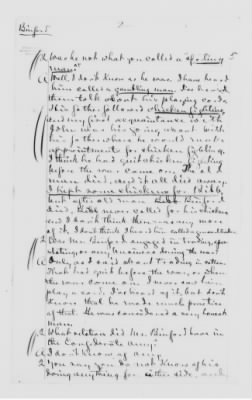 Binford
2
5
Q Was he not what you called a sporting
man?
A Well, I don't know as he was. I have heard
him called a gambling man. I've heard
them talk about his playing cards.
His father followed chicken fighting
and my first acquaintance with
John was his going about with
his father where he would make
appointments for chicken fighting.
I think he had quit chicken fighting
before the war came on. The old
man died, and it all died away.
I kept some chickens for
but after old man Binford
died, never called for his chickens
and I don't think there was any more
of it. I don't think I heard him called a
Q Was Mr. Binford engaged in trading, spec-
ulating, or any business during the war?
A Only as I said about trading in
that he had quit before the war, or when
the war came on. I never saw him
play a card. I've heard of it, but don't
know that he made much practice
of that. He was considered a very honest
man.
Q What relation did Mr. Binford bear in
the Confederate army?
A I don't know of any.
Q You say you do not know of his
doing anything for either side, and